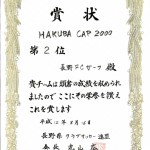 賞状
HAKUBA CAP 2000
第2位
長野FCガーフ 殿
貴チームは頭書の成績を収められ
ましたのでここにその栄誉を讃え
これを賞します
平成12年8月
長野県クラブサッカー連盟
会長